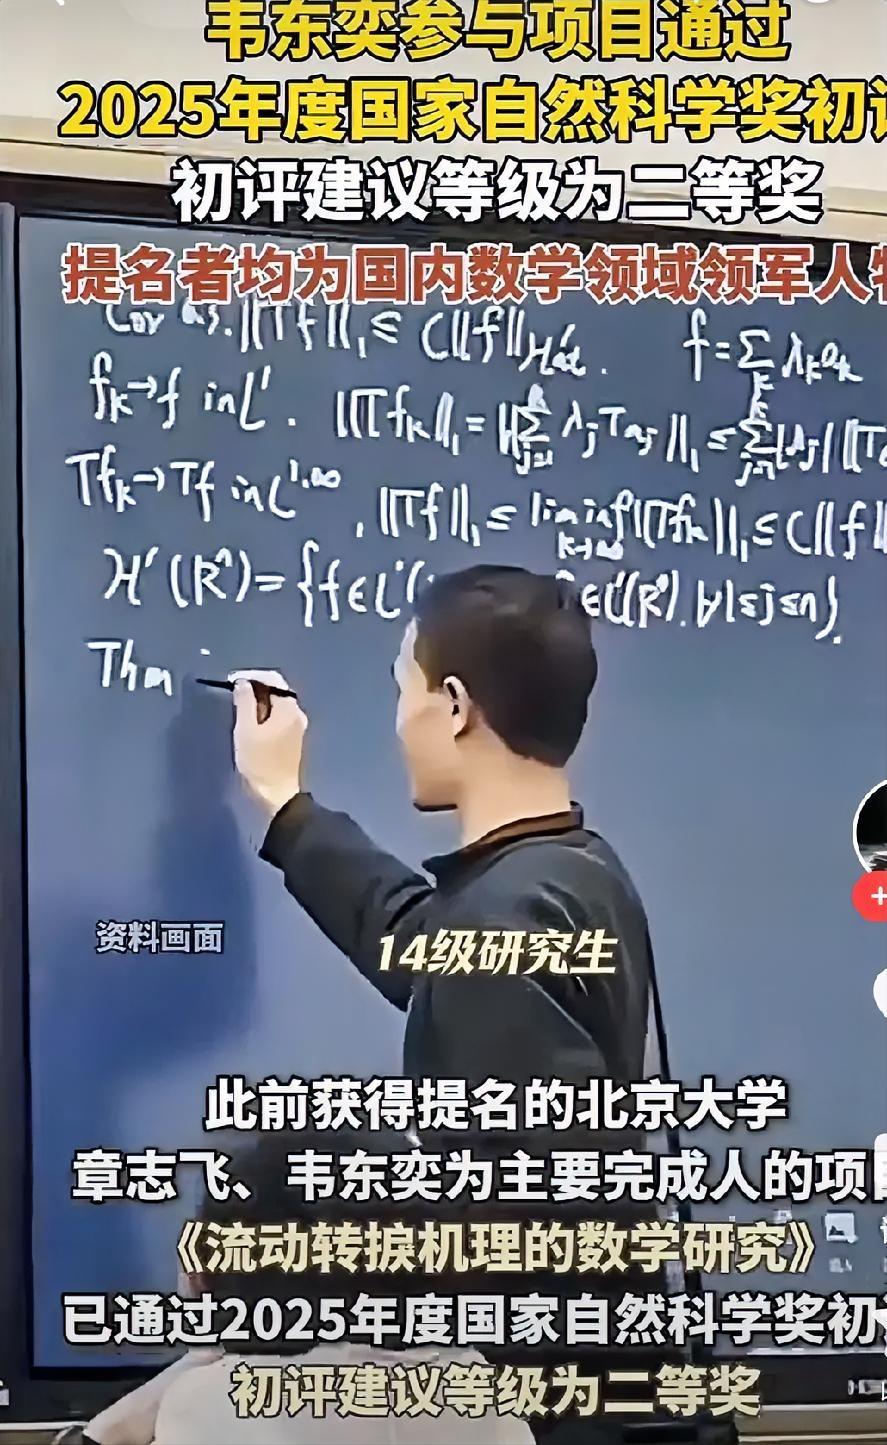 韦东奕参与项目通过
2025年度国家自然科学奖初评
初评建议等级为二等奖
提名者均为国内数学领域领军人物
Cor as. ||Tf||₁ ≤ C||f||_{H¹at}. f = Σ_k λ_k a_k
f_k → f in L¹. ||Tf_k||₁ = ||Σ_{j=1}^k λ_j T a_j||₁ ≤ Σ_{j=1}^k |λ_j| ||T
Tf_k → Tf in L^{1,∞}, ||Tf||₁ ≤ lim inf_{k→∞} ||Tf_k||₁ ≤ C||f||
H¹(Rⁿ) = {f ∈ L¹( ∈ L¹(Rⁿ). ∀ 1≤j≤n}.
Thm
资料画面
14级研究生
此前获得提名的北京大学
章志飞、韦东奕为主要完成人的项目
《流动转捩机理的数学研究》
已通过2025年度国家自然科学奖初
初评建议等级为二等奖